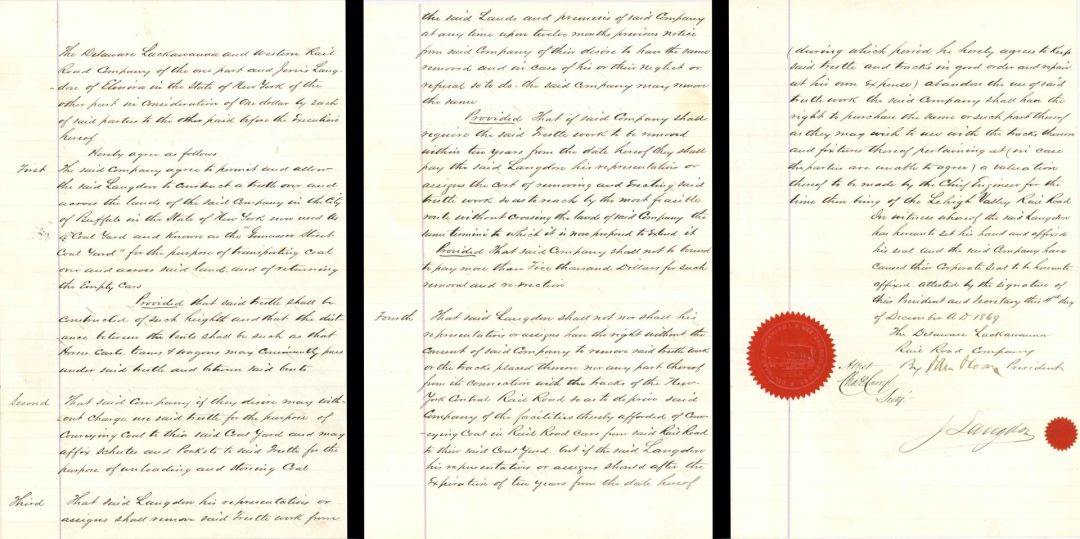 The Delaware Lackawanna and Western Rail
Road Company of the one part and Jervis Lang-
-don of Elmira in the State of New York of the
other part in Consideration of One dollar by each
of said parties to the other paid before the Execution
hereof
Hereby agree as follows
First The said Company agree to permit and allow
the said Langdon to construct a trestle over and
across the lands of the said Company in the City
of Buffalo in the State of New York now used as
a Coal Yard and Known as the "Tennessee Street
Coal Yard" for the purpose of transporting Coal
over and across said land and of returning
the Empty Cars
Provided that said trestle shall be
Constructed of such heighth and that the dist-
ance between the bents shall be such as that
Horses Carts teams & wagons may Conveniently pass
under said trestle and between said bents
Second That said Company if they desire may with-
out Charge use said trestle for the purpose of
Conveying Coal to their said Coal Yard and may
affix Schutes and Pockets to said Trestle for the
purpose of unloading and storing Coal
Third That said Langdon his representatives or
assigns shall remove said Trestle work from
the said Lands and premises of said Company
at any time upon twelve months previous notice
from said Company of their desire to have the same
removed and in case of his or their neglect or
refusal so to do the said Company may remove
the same
Provided That if said Company shall
require the said Trestle work to be removed
within ten years from the date hereof they shall
pay the said Langdon his representatives or
assigns the cost of removing and Erecting said
trestle work so as to reach by the most feasible
route without Crossing the lands of said Company the
same termini to which it is now proposed to Extend it
Provided That said Company shall not be bound
to pay more than Five thousand Dollars for such
removal and re-erection
Fourth That said Langdon shall not nor shall his
representatives or assigns have the right without the
Consent of said Company to remove said trestle work
or the tracks placed thereon nor any part thereof
from its Connection with the tracks of the New
York Central Rail Road so as to deprive said
Company of the facilities thereby afforded of Con-
-veying Coal in Rail Road Cars from said Rail Road
to their said Coal Yard. but if the said Langdon
his representatives or assigns should after the
Expiration of ten years from the date hereof
(during which period he hereby agrees to Keep
said trestle and tracks in good order and repair
at his own Expense) abandon the use of said
trestle work the said Company shall have the
right to purchase the same or such part thereof
as they may wish to use with the tracks thereon
and fixtures thereof pertaining at (in case
the parties are unable to agree) a valuation
thereof to be made by the Chief Engineer for the
time then being of the Lehigh Valley Rail Road
In witness whereof the said Langdon
has hereunto set his hand and affixed
his seal and the said Company have
Caused their Corporate Seal to be hereunto
affixed attested by the signature of
their President and Secretary this 4th day
of December A.D 1869
The Delaware Lackawanna
Rail Road Company
By President
Attest
Secty.
J Langdon